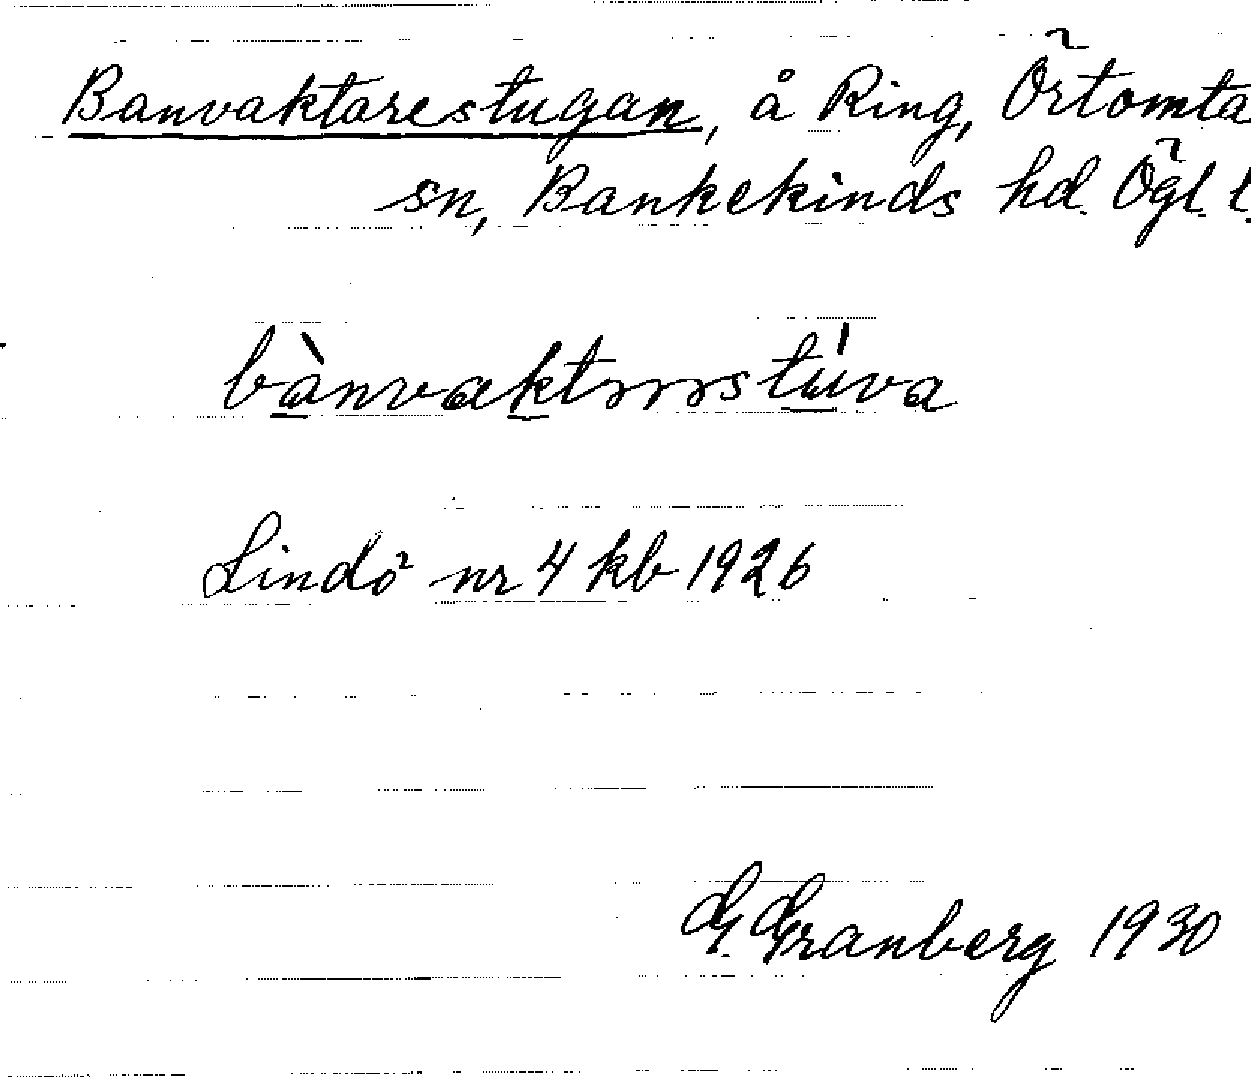 Banvaktarestugan, å Ring, Örtomta
sn, Bankekinds hd. Ögl. l.
Lindö nr 4 kb 1926
G. Granberg 1930